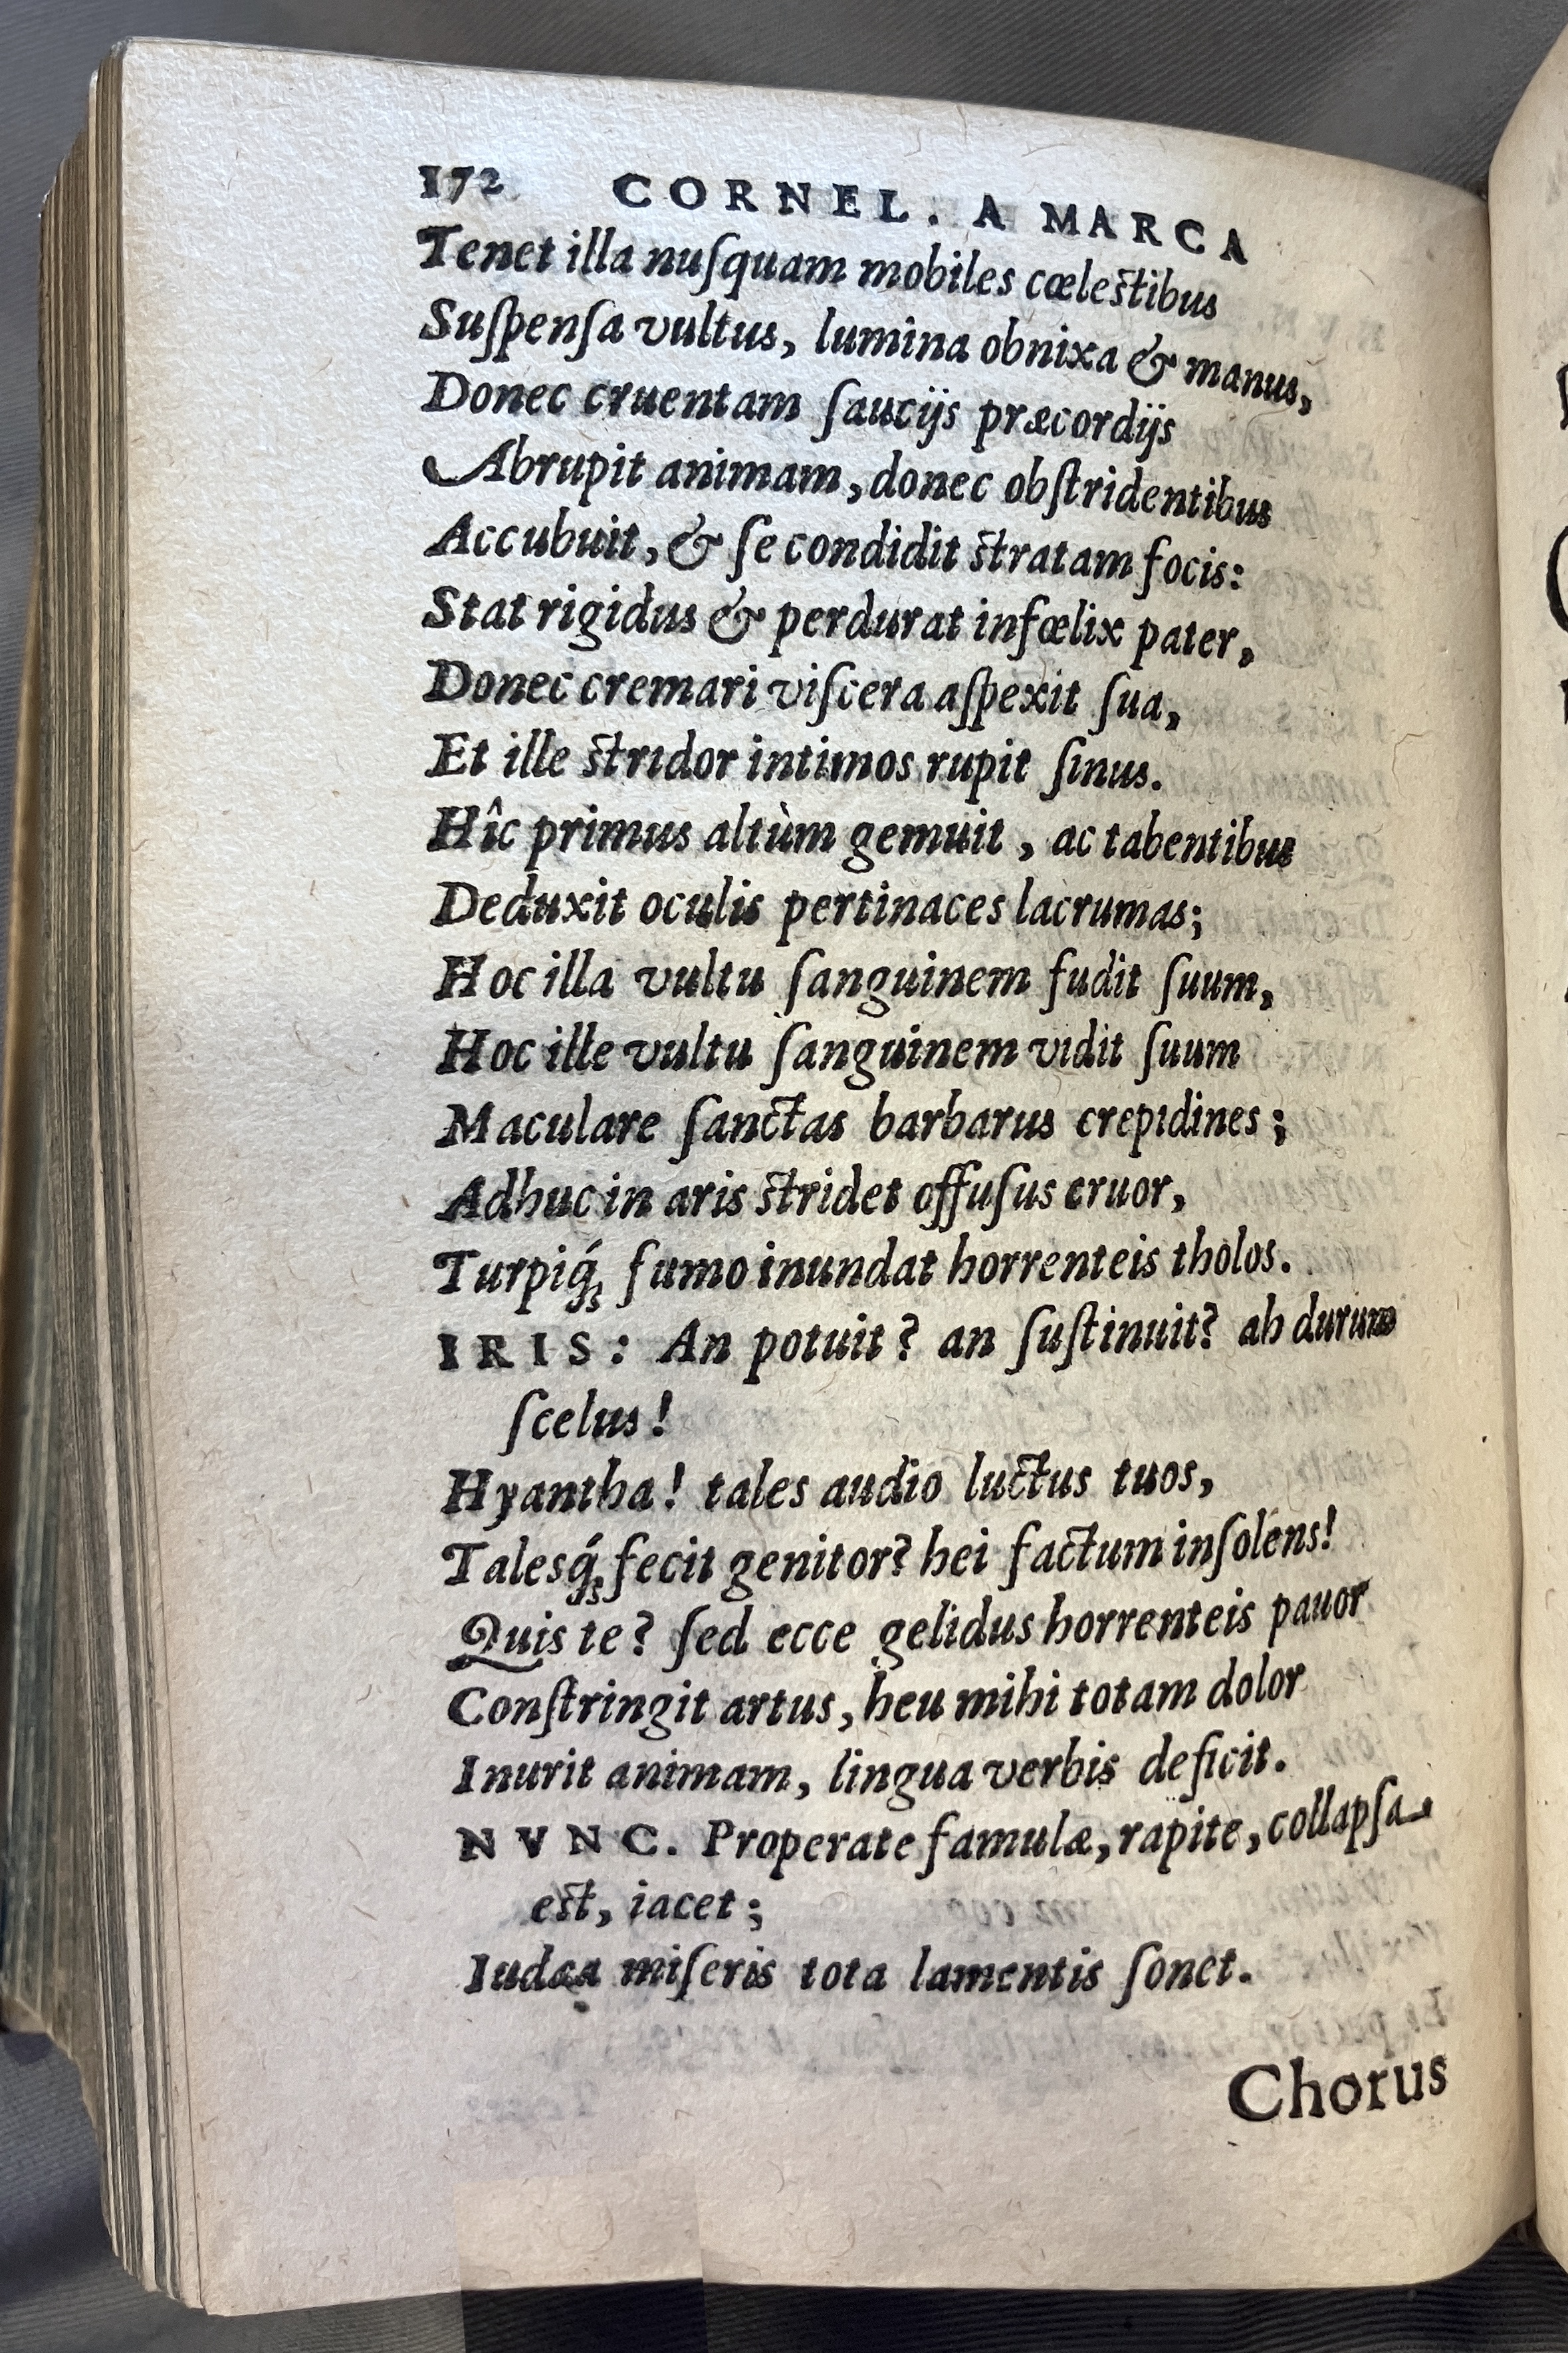 172 CORNEL. A MARCA
Tenet illa nuſquam mobiles cœleſtibus
Suſpenſa vultus, lumina obnixa & manus,
Donec cruentam ſaucijs præcordijs
Abrupit animam, donec obſtridentibus
Accubuit, & ſe condidit ſtratam focis:
Stat rigidus & perdurat infœlix pater,
Donec cremari viſcera aſpexit ſua,
Et ille ſtridor intimos rupit ſinus.
Hîc primus altùm gemuit, ac tabentibus
Deduxit oculis pertinaces lacrumas;
Hoc illa vultu ſanguinem fudit ſuum,
Hoc ille vultu ſanguinem vidit ſuum
Maculare ſanctas barbarus crepidines;
Adhuc in aris ſtridet offuſus cruor,
Turpiq́ꝫ fumo inundat horrenteis tholos.
IRIS: An potuit? an ſuſtinuit? ah durum
ſcelus!
Hyantha! tales audio luctus tuos,
Talesq́ꝫ fecit genitor? hei factum inſolens!
Quis te? ſed ecce gelidus horrenteis pauor
Conſtringit artus, heu mihi totam dolor
Inurit animam, lingua verbis deficit.
NVNC. Properate famulæ, rapite, collapſa
eſt, iacet;
Iudæa miſeris tota lamentis ſonet.
Chorus